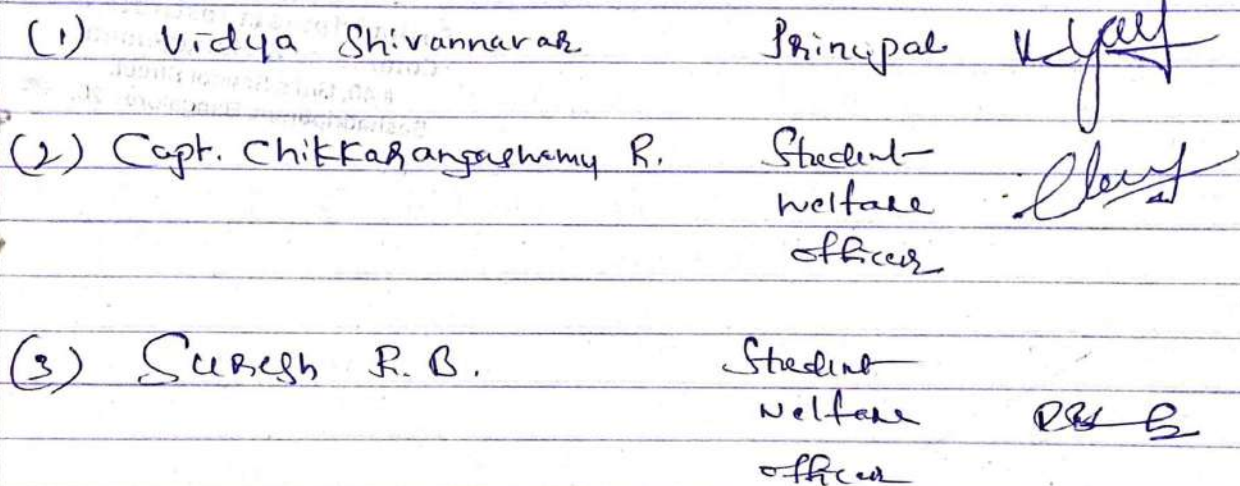 (1) Vidya Shivannavar Principal
(2) Capt. Chikkarangaswamy R. Student
welfare
officer
(3) Suresh R. B. Student
Welfare
officer